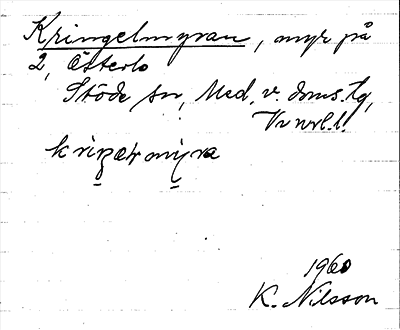 Kringelmyran, myr på
2, Österlo
Stöde sn, Med. v. doms. tg,
Vv nrl. l.
kriŋelmyra
1960
K. Nilsson